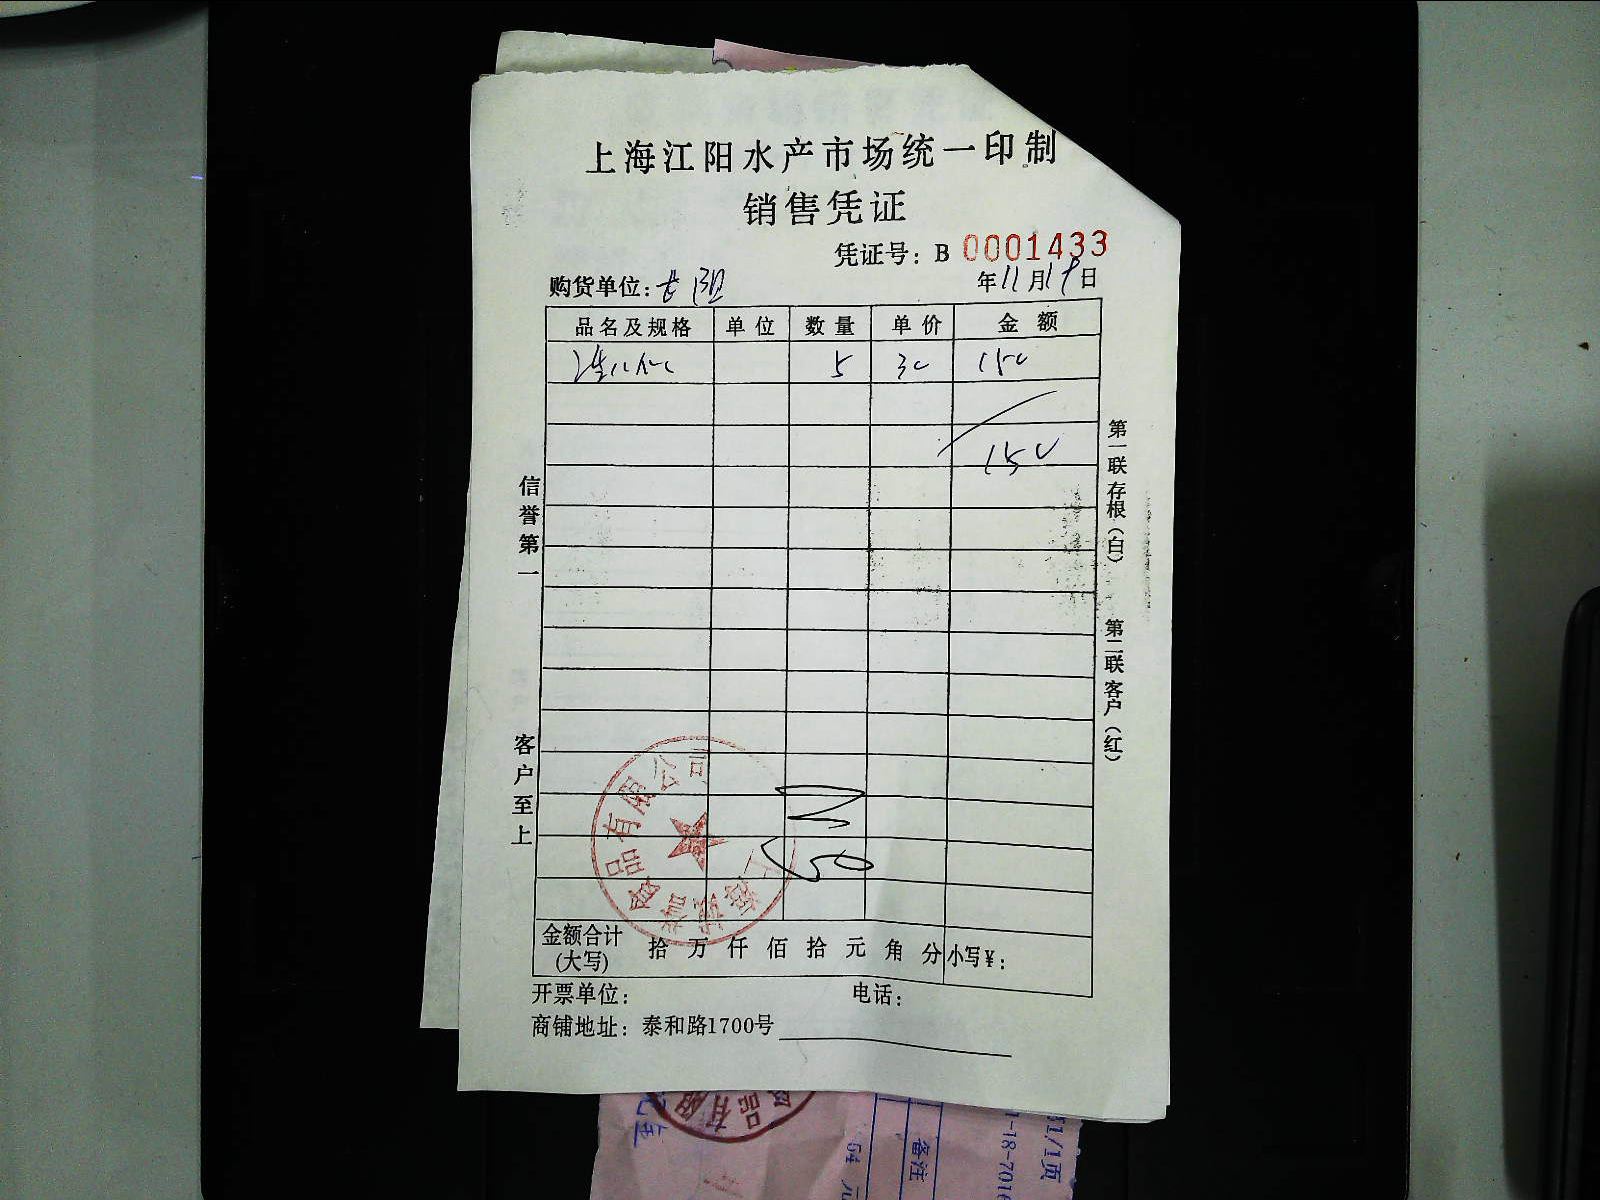 上海江阳水产市场统一印制
销售凭证
凭证号：B 0001433
购货单位： 年11月19日
品名及规格 单位 数量 单价 金额
5 30 150
150
信誉第一
客户至上
第一联存根（白）
第二联客户（红）
金额合计(大写) 拾 万 仟 佰 拾 元 角 分 小写¥：
开票单位： 电话：
商铺地址：泰和路1700号
食品有限公司
备注
1/1页